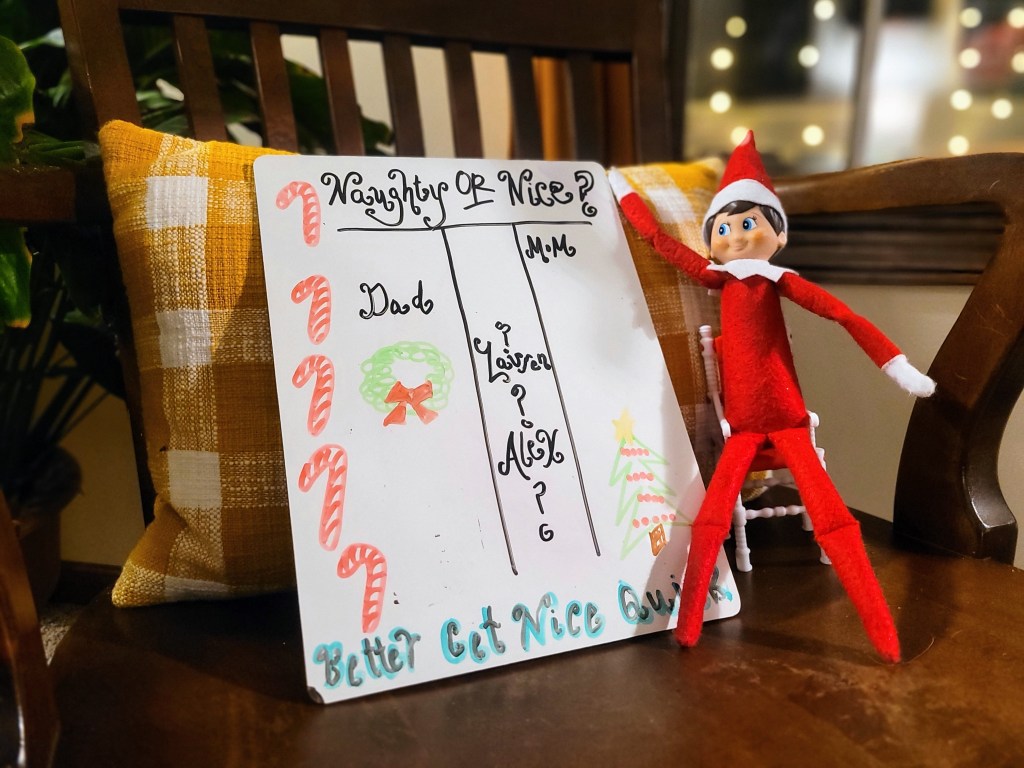 Naughty OR Nice?
MoM
Dad
?
?
Alex
?
Better Get Nice Quick